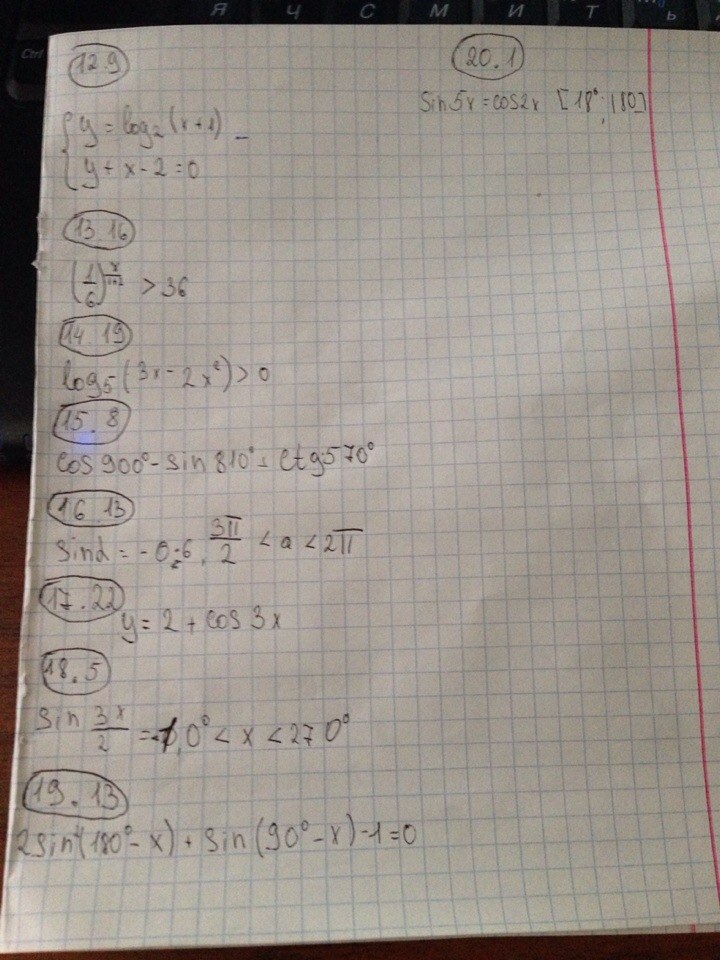 Я Ч С М И Т Ь
Ctrl
12.9
{ y = log₂(x+1)
{ y + x - 2 = 0
13.16
(1/6)^ > 36
14.19
log₅(3x - 2x²) > 0
15.8
cos 900° - sin 810° = ctg 570°
16.13
sin α = -0,6, 3π/2 < a < 2π
17.22
y = 2 + cos 3x
18.5
sin 3x/2 = -1, 0° < x < 270°
19.13
2sin²(180° - x) + sin(90° - x) - 1 = 0
20.1
sin 5x = cos 2x [18°; 180]